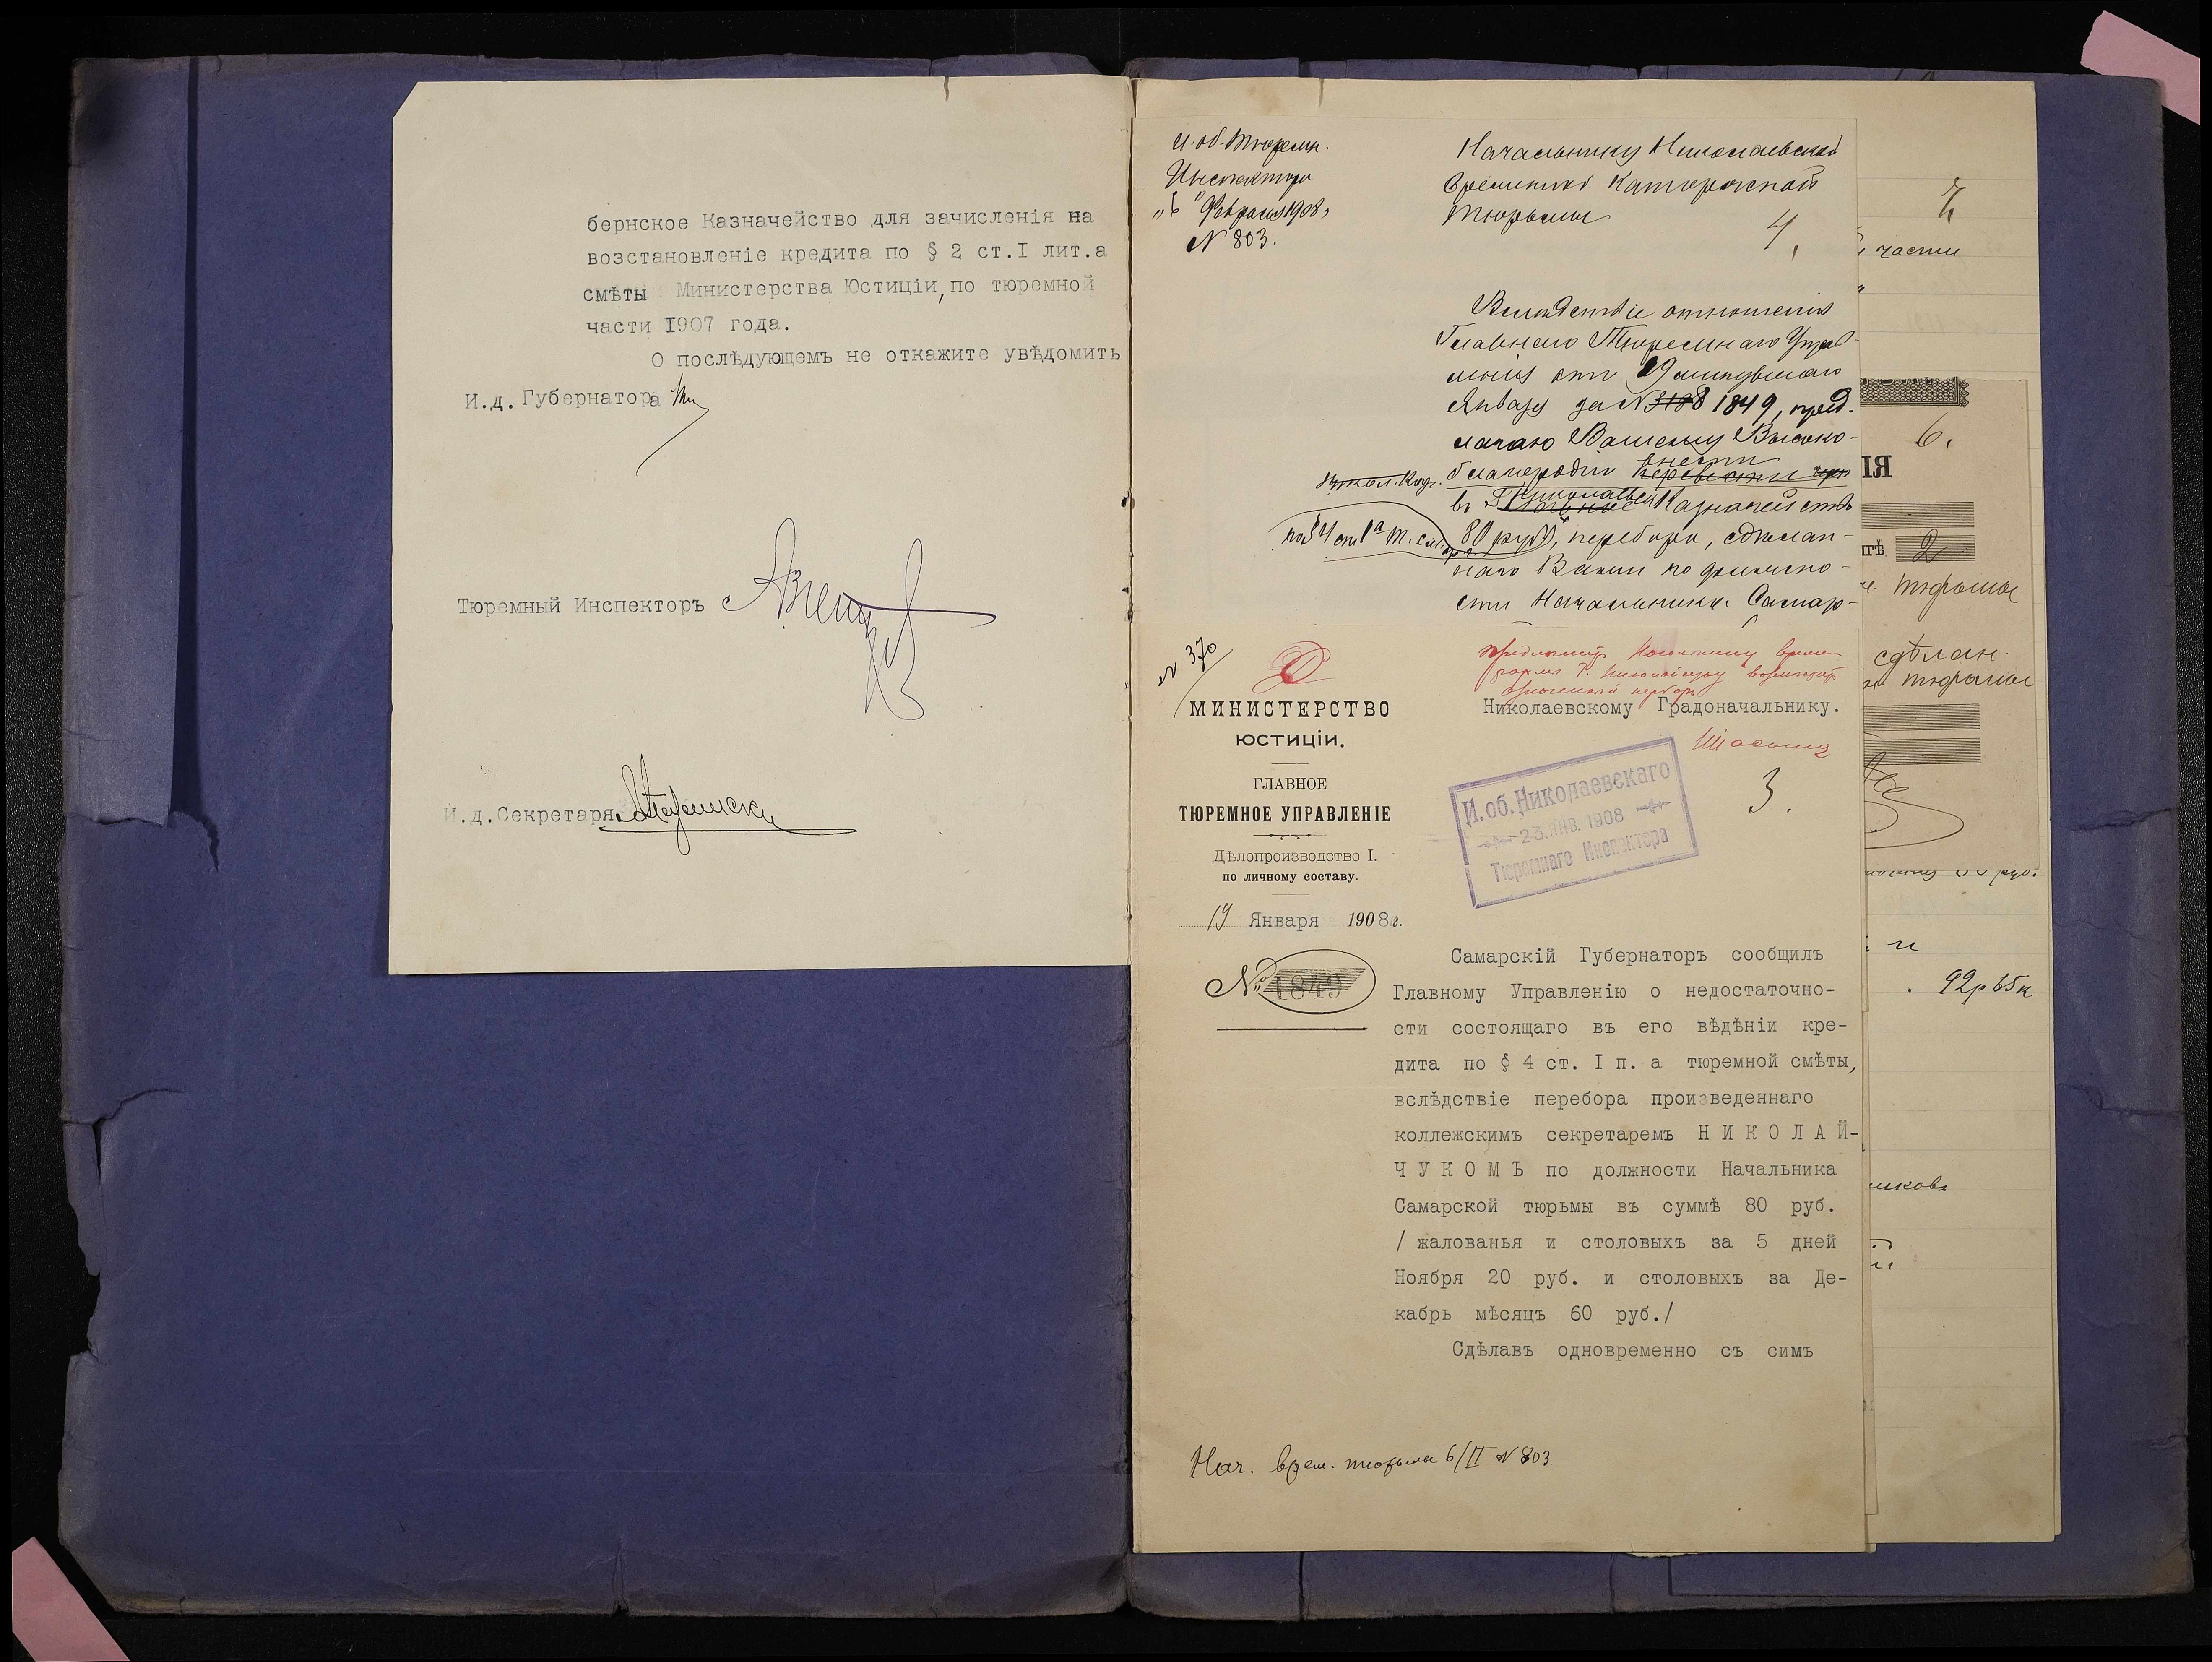 бернское Казначейство для зачисленія на
возстановленіе кредита по § 2 ст.I лит.а
смѣты Министерства Юстиціи,по тюремной
части I907 года.
О послѣдующемъ не откажите увѣдомить
И.д. Губернатора
Тюремный Инспекторъ
И.д.Секретаря
И.об. Тюремн.
Инспектора
"6" Февраля 1908 г.
N 803.
Начальнику Николаевской
временной каторжной
тюрьмы
4.
Вслѣдствіе отношенія
Главнаго Тюремнаго Управ-
ленія отъ 19 минувшаго
Января за N 1849, пред-
лагаю Вашему Высоко-
благородію внести
въ Николаевск. Казначейство
80 руб., перебора, сдѣлан-
наго Вами по должно-
сти Начальника Самар-
N 370
МИНИСТЕРСТВО
ЮСТИЦІИ.
ГЛАВНОЕ
ТЮРЕМНОЕ УПРАВЛЕНІЕ
Дѣлопроизводство I.
по личному составу.
19 Января 1908 г.
№ 1849
Николаевскому Градоначальнику.
И.об.Николаевскаго
23.ЯНВ.1908
Тюремнаго Инспектора
3.
Самарскій Губернаторъ сообщилъ
Главному Управленію о недостаточно-
сти состоящаго въ его вѣдѣніи кре-
дита по § 4 ст. I п. а тюремной смѣты,
вслѣдствіе перебора произведеннаго
коллежскимъ секретаремъ Н И К О Л А Й-
Ч У К О М Ъ по должности Начальника
Самарской тюрьмы въ суммѣ 80 руб.
/ жалованья и столовыхъ за 5 дней
Ноября 20 руб. и столовыхъ за Де-
кабрь мѣсяцъ 60 руб./
Сдѣлавъ одновременно съ симъ
Нач. врем. тюрьмы 6/II N 803
части
6.
ІЯ
2
тюрьмы
сдѣлан.
тюрьмы
и
92р 65к